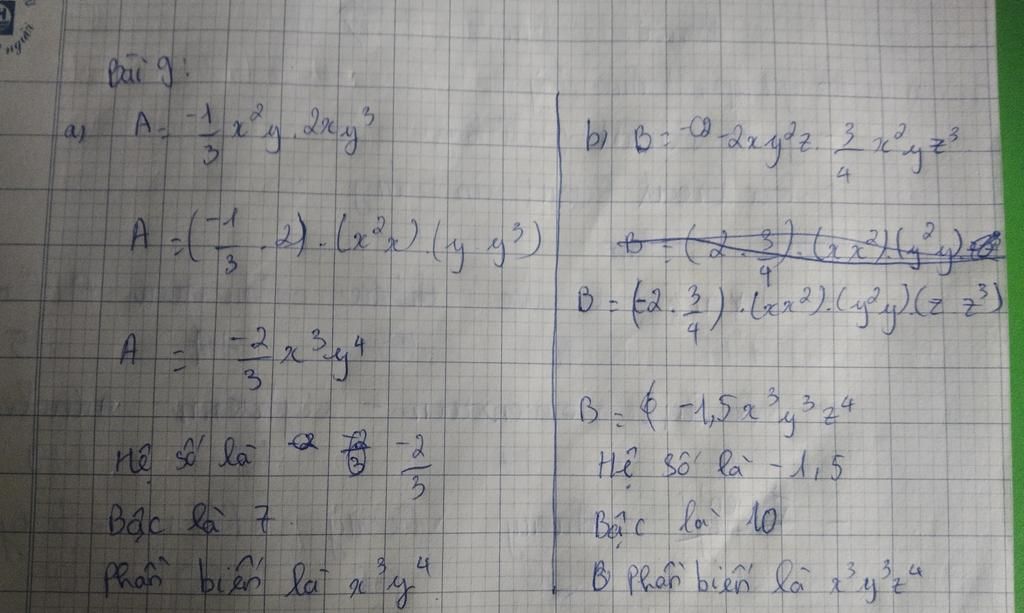 Bài 9:
a) A = -1/3 x²y . 2xy³
A = (-1/3 . 2) . (x²x) . (y y³)
A = -2/3 x³y⁴
Hệ số là -2/3
Bậc là 7
Phần biến là x³y⁴
b) B = -2xy²z . 3/4 x²yz³
B = (2 . 3/4) . (xx²) . (y²y)
B = (-2 . 3/4) . (xx²) . (y²y) (z z³)
B = -1,5x³y³z⁴
Hệ số là -1,5
Bậc là 10
B Phần biến là x³y³z⁴